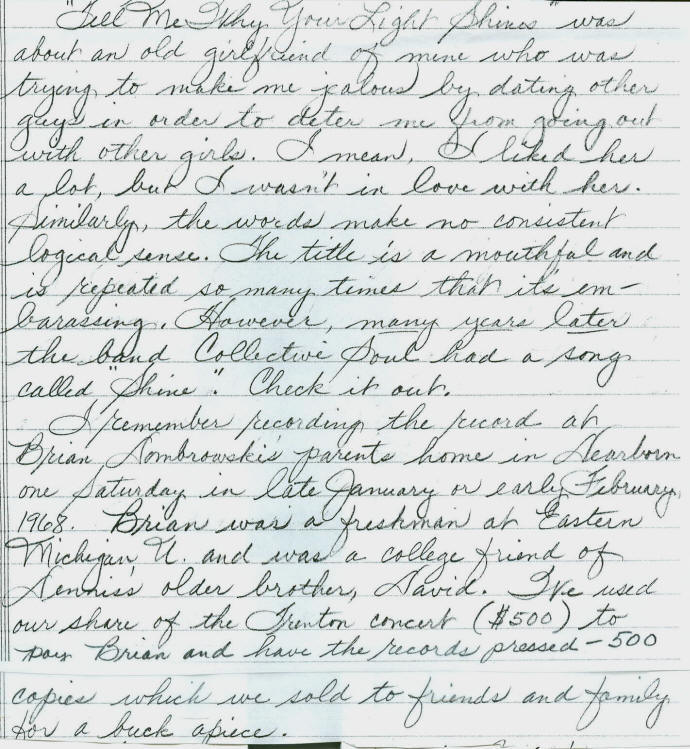 "Tell Me Why Your Light Shines" was
about an old girlfriend of mine who was
trying to make me jealous by dating other
guys in order to deter me from going out
with other girls. I mean, I liked her
a lot, but I wasn't in love with her.
Similarly, the words make no consistent
logical sense. The title is a mouthful and
is repeated so many times that it's em-
barassing. However, many years later
the band Collective Soul had a song
called "Shine". Check it out.
I remember recording the record at
Brian Dombrowski's parents home in Dearborn
one Saturday in late January or early February,
1968. Brian was a freshman at Eastern
Michigan U. and was a college friend of
Dennis's older brother, David. We used
our share of the Trenton concert ($500) to
pay Brian and have the records pressed - 500
copies which we sold to friends and family
for a buck apiece.